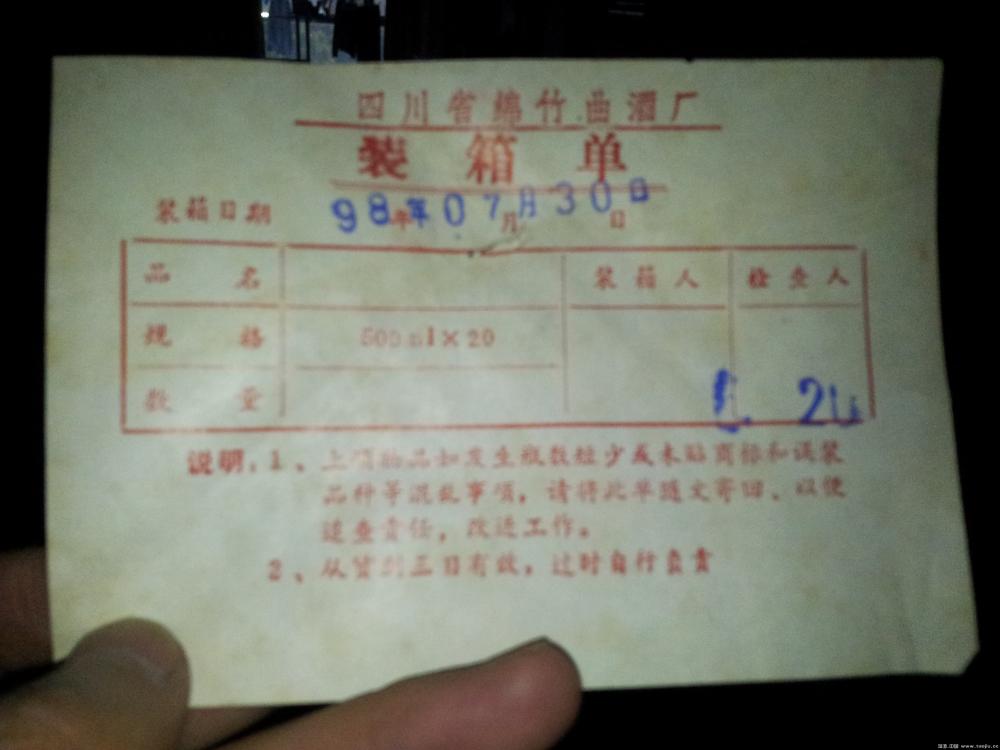 四川省绵竹曲酒厂
装箱单
装箱日期 98年年07月月30日日
品名 装箱人 检查人
规格 500ml×20
数量 20
说明:1、上项物品如发生瓶数短少或未贴商标和误装
品种等混乱事项,请将此单随文寄回、以便
追查责任,改进工作。
2、从货到三日有效,过时自行负责